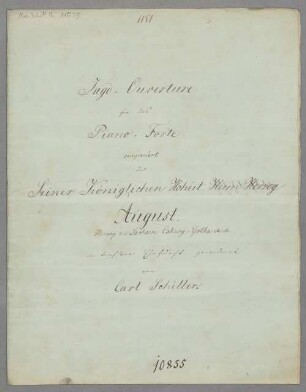 1151
Jagd-Ouverture
für das
Piano-Forte
componirt
und
Seiner Königlichen Hoheit Herrn Herzog
August.
Herzog zu Sachsen Coburg-Gotha
in tiefster Ehrfurcht gewidmet
von
Carl Schiller
10855